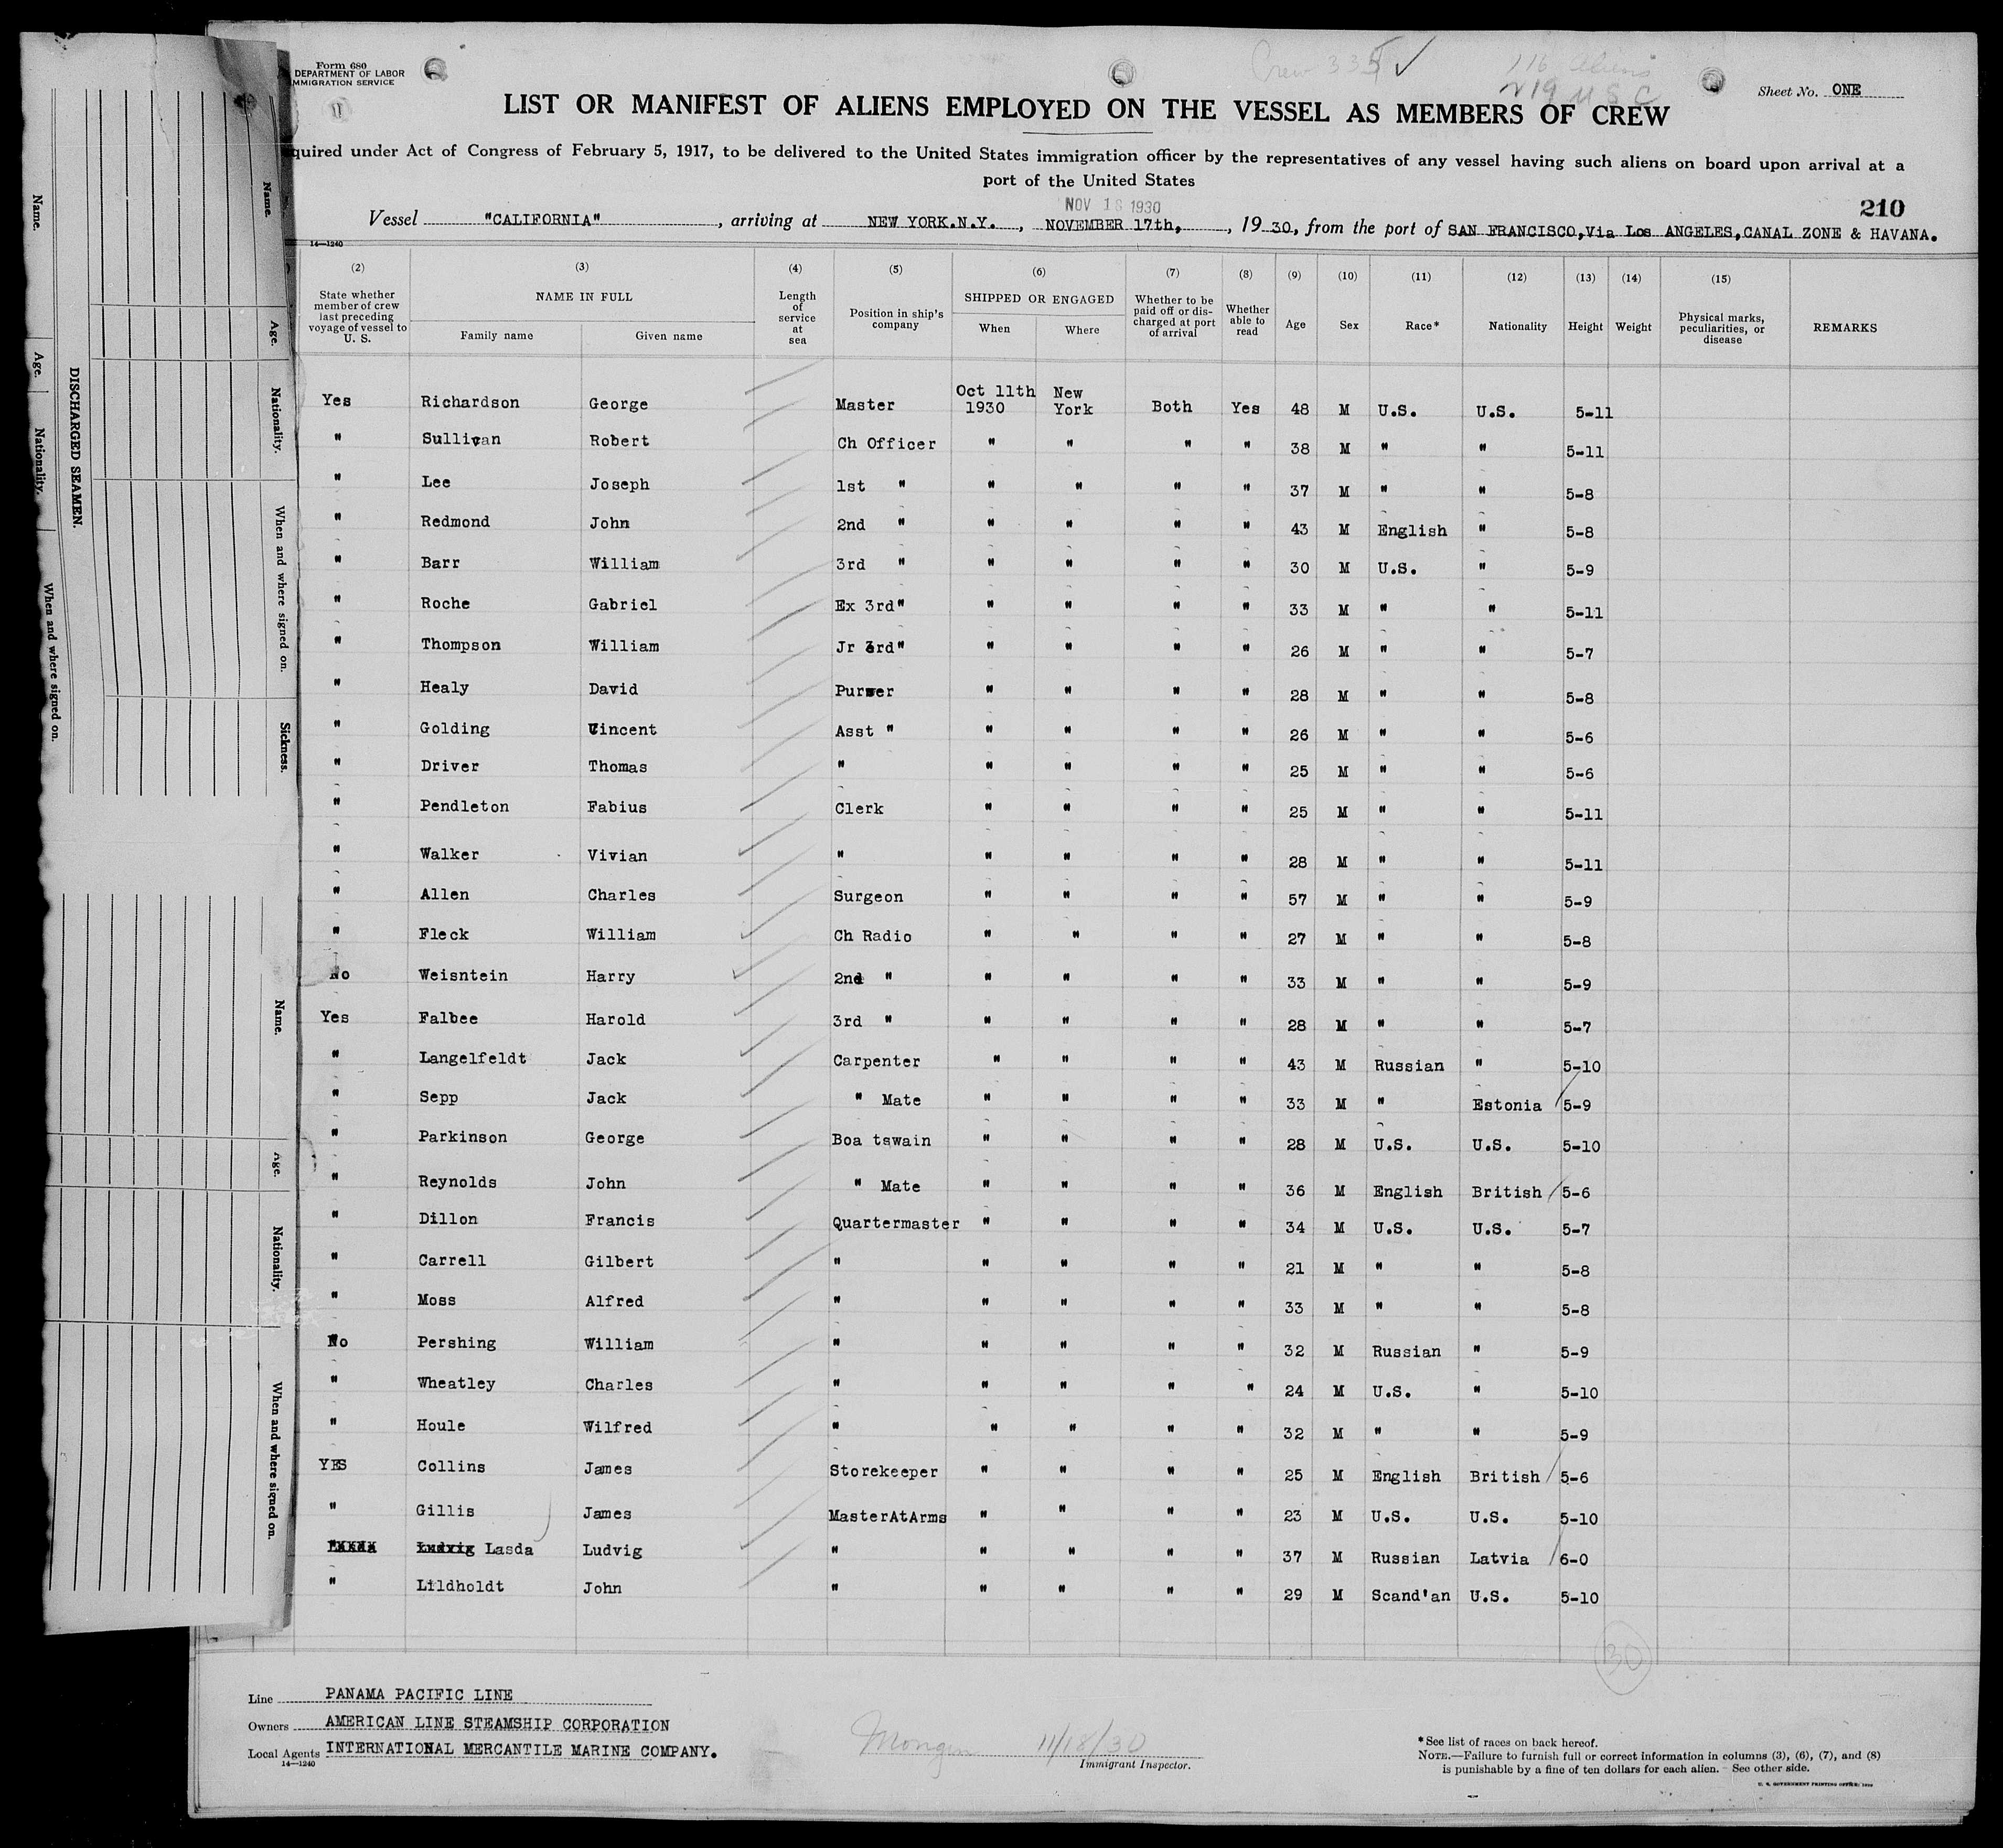 Form 680
DEPARTMENT OF LABOR
MMIGRATION SERVICE
Crew 335 ✓
116 aliens
219 U S C
Sheet No. ONE
LIST OR MANIFEST OF ALIENS EMPLOYED ON THE VESSEL AS MEMBERS OF CREW
quired under Act of Congress of February 5, 1917, to be delivered to the United States immigration officer by the representatives of any vessel having such aliens on board upon arrival at a
port of the United States
NOV 18 1930
210
Vessel "CALIFORNIA", arriving at NEW YORK.N.Y., NOVEMBER 17th,, 1930, from the port of SAN FRANCISCO,Via Los ANGELES,CANAL ZONE & HAVANA.
14—1240
(2) (3) (4) (5) (6) (7) (8) (9) (10) (11) (12) (13) (14) (15)
State whether member of crew last preceding voyage of vessel to U. S. NAME IN FULL Family name Given name Length of service at sea Position in ship's company SHIPPED OR ENGAGED When Where Whether to be paid off or discharged at port of arrival Whether able to read Age Sex Race* Nationality Height Weight Physical marks, peculiarities, or disease REMARKS
Yes Richardson George Master Oct 11th 1930 New York Both Yes 48 M U.S. U.S. 5-11
" Sullivan Robert Ch Officer " " " " 38 M " " 5-11
" Lee Joseph 1st " " " " " 37 M " " 5-8
" Redmond John 2nd " " " " " 43 M English " 5-8
" Barr William 3rd " " " " " 30 M U.S. " 5-9
" Roche Gabriel Ex 3rd" " " " " 33 M " " 5-11
" Thompson William Jr 3rd" " " " " 26 M " " 5-7
" Healy David Purser " " " " 28 M " " 5-8
" Golding Vincent Asst " " " " " 26 M " " 5-6
" Driver Thomas " " " " " 25 M " " 5-6
" Pendleton Fabius Clerk " " " " 25 M " " 5-11
" Walker Vivian " " " " " 28 M " " 5-11
" Allen Charles Surgeon " " " " 57 M " " 5-9
" Fleck William Ch Radio " " " " 27 M " " 5-8
No Weisntein Harry 2nd " " " " " 33 M " " 5-9
Yes Falbee Harold 3rd " " " " " 28 M " " 5-7
" Langelfeldt Jack Carpenter " " " " 43 M Russian " 5-10
" Sepp Jack " Mate " " " " 33 M " Estonia 5-9
" Parkinson George Boa tswain " " " " 28 M U.S. U.S. 5-10
" Reynolds John " Mate " " " " 36 M English British 5-6
" Dillon Francis Quartermaster " " " " 34 M U.S. U.S. 5-7
" Carrell Gilbert " " " " " 21 M " " 5-8
" Moss Alfred " " " " " 33 M " " 5-8
No Pershing William " " " " " 32 M Russian " 5-9
" Wheatley Charles " " " " " 24 M U.S. " 5-10
" Houle Wilfred " " " " " 32 M " " 5-9
YES Collins James Storekeeper " " " " 25 M English British 5-6
" Gillis James MasterAtArms " " " " 23 M U.S. U.S. 5-10
Ludvig Lasda Ludvig " " " " " 37 M Russian Latvia 6-0
" Lildholdt John " " " " " 29 M Scand'an U.S. 5-10
30
Line PANAMA PACIFIC LINE
Owners AMERICAN LINE STEAMSHIP CORPORATION
Local Agents INTERNATIONAL MERCANTILE MARINE COMPANY.
14—1240
11/18/30
Immigrant Inspector.
*See list of races on back hereof.
NOTE.—Failure to furnish full or correct information in columns (3), (6), (7), and (8)
is punishable by a fine of ten dollars for each alien. See other side.
U. S. GOVERNMENT PRINTING OFFICE: 1930
DISCHARGED SEAMEN.
Name.
Age.
Nationality.
When and where signed on.
Name.
Age.
Nationality.
When and where signed on.
Sickness.
Name.
Age.
Nationality.
When and where signed on.